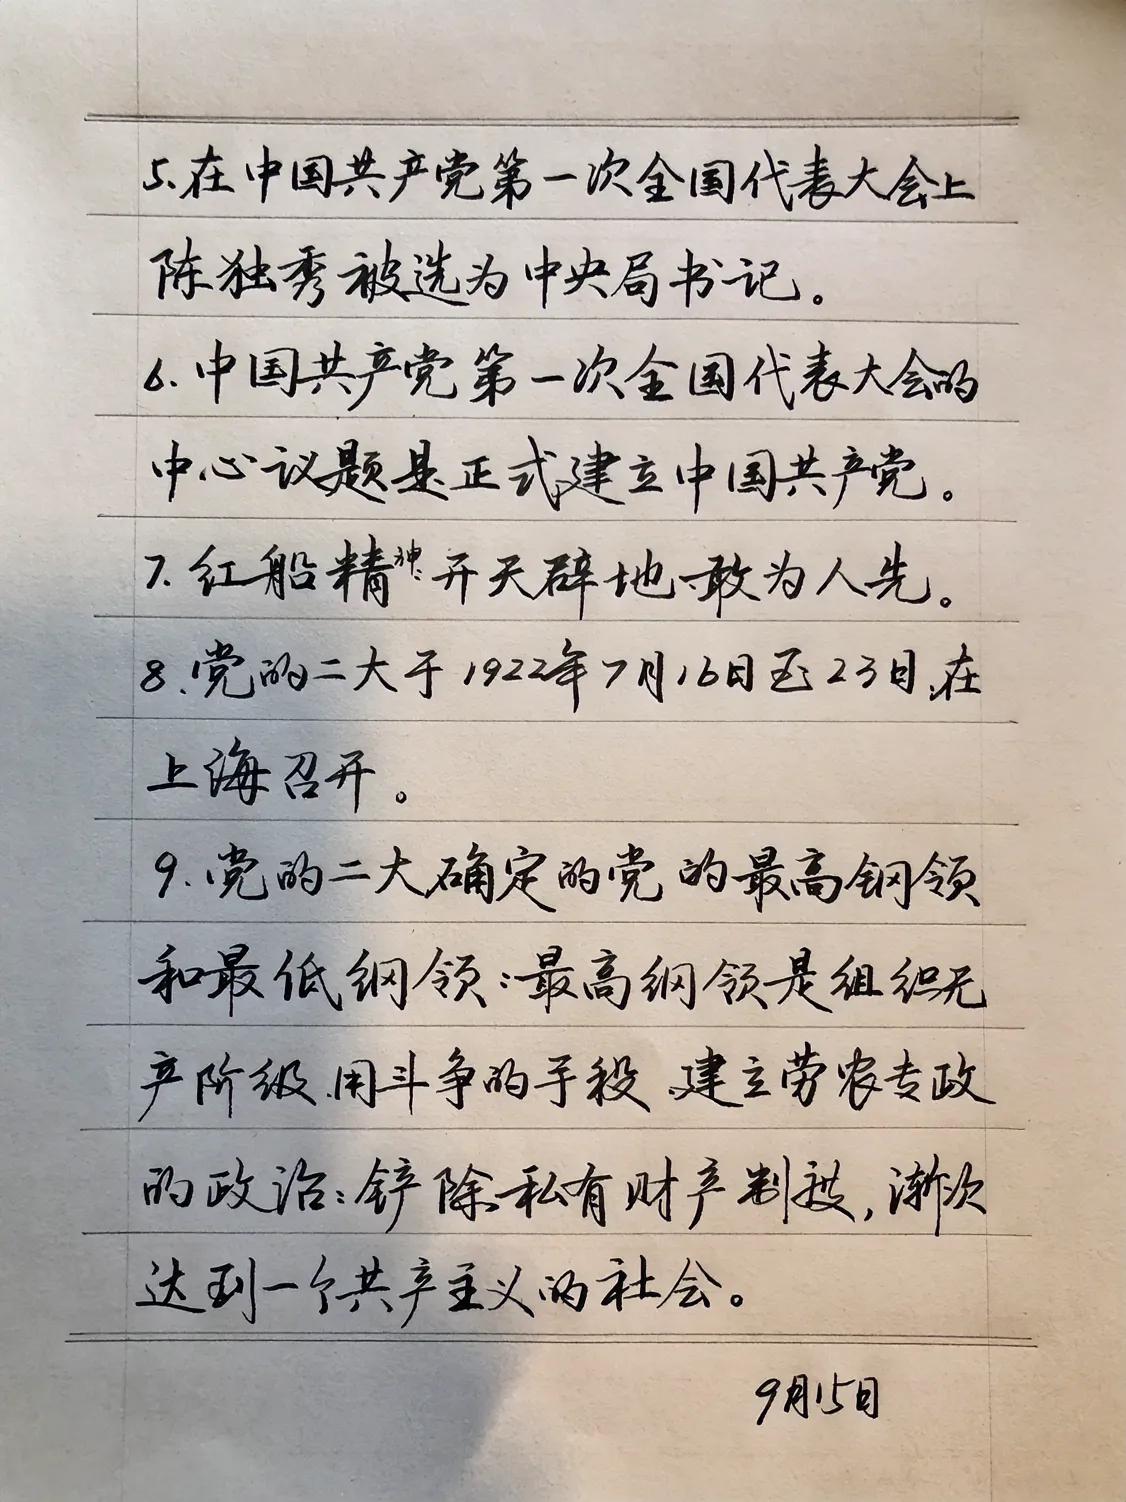 5.在中国共产党第一次全国代表大会上
陈独秀被选为中央局书记。
6.中国共产党第一次全国代表大会的
中心议题是正式建立中国共产党。
7.红船精神:开天辟地、敢为人先。
8、党的二大于1922年7月16日至23日,在
上海召开。
9.党的二大确定的党的最高钢领
和最低纲领:最高纲领是组织无
产阶级,用斗争的手段,建立劳农专政
的政治;铲除私有财产制度,渐次
达到一个共产主义的社会。
9月15日